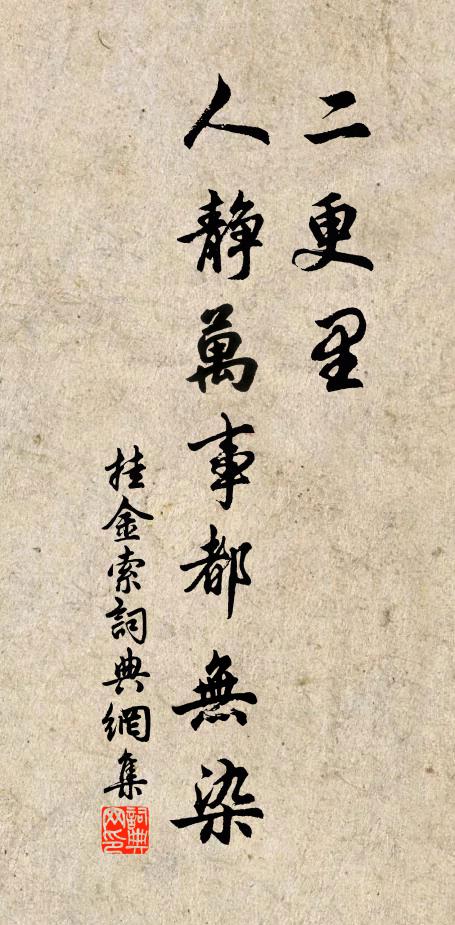 二更里
人靜萬事都無染
挂金索詞典網集
詞典网印